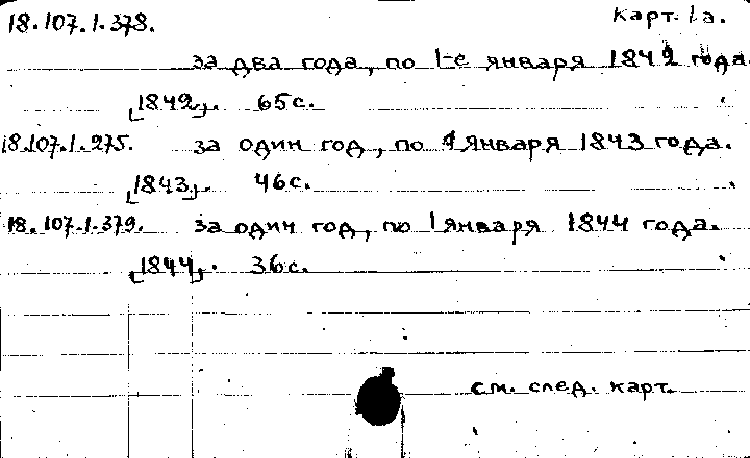 18.107.1.378. Карт. 1а.
за два года, по 1-е января 1842 года.
[1842]. 65 с.
18.107.1.275. за один год, по 1 января 1843 года.
[1843]. 46 с.
18.107.1.379. за один год, по 1 января 1844 года.
[1844]. 36 с.
см. след. карт.